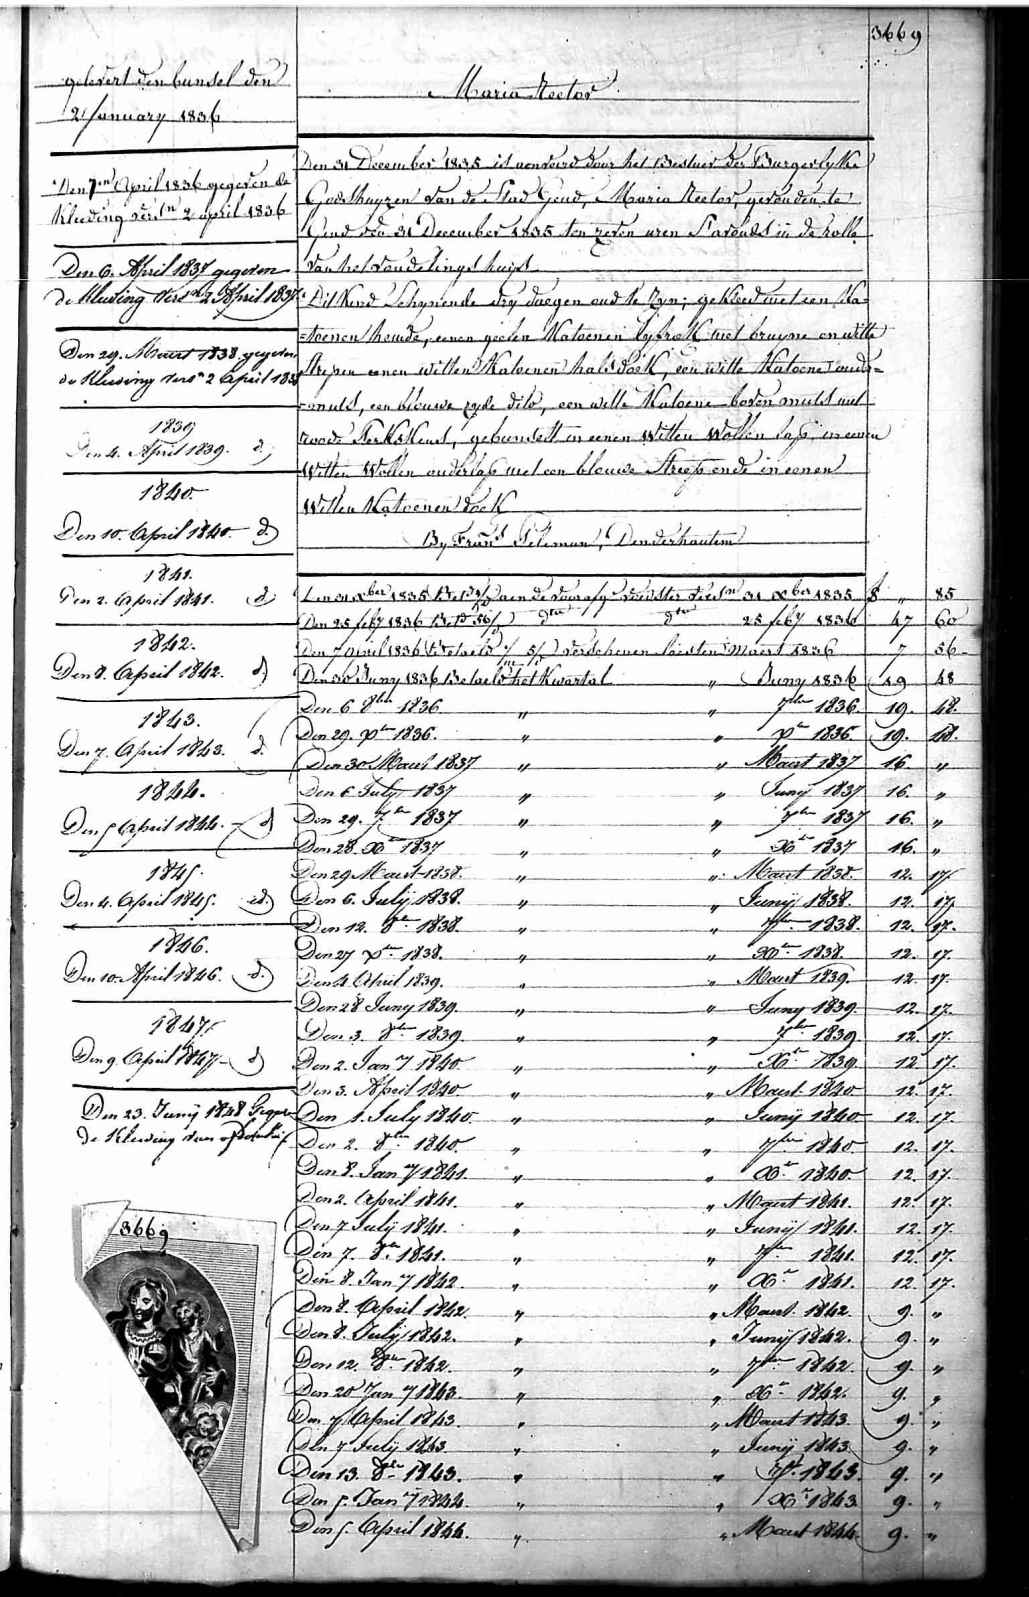 3669
gelevert den bunsel den
2 January 1836
Den 7en April 1836 gegeven de
Kleeding versn 2 april 1836
Den 6. April 1837 gegeven
de Kleeding versn 2 April 1837
Den 29. Maart 1838 gegeven
de Kleeding versn 2 April 1838
1839
Den 4. April 1839. d)
1840.
Den 10. April 1840. d)
1841.
Den 2. April 1841. d)
1842.
Den 8. April 1842. d)
1843.
Den 7. April 1843. d.
1844.
Den 5 April 1844. d)
1845.
Den 4. April 1845. d)
1846.
Den 10. April 1846. d.
1847.
Den 9. April 1847. d)
Den 23. Junij 1848
de Kleeding van
3669
Maria Nector
Den 31 December 1835 is aenveerd door het Bestuer der Burgerlyke
Godshuyzen van de Stad Gend, Maria Nector, gevonden te
Gend den 31 December 1835 ten zeven uren S'avonds in de rolle
van het vondelings huys
Dit Kind Schynende dry daegen oud te zyn; gekleed met een Ka-
-toenen hemde, eenen geelen Katoenen lyfrok met bruyne en witte
strepen eenen witten Katoenen halsdoek, een witte Katoene onder-
-muts, een blauwe zyde dito, een witte Katoene boven muts met
roode, gebunselt in eenen Witten Wollen lap, in eenen
Witten Wollen onderlap met een blauwe Streep ende in eenen
Witten Katoenen doek
By Frans Peleman, Denderhautem
Den 31 Xber 1835 aen de voorafge voedster versn 31 Xber 1835 $ " 85
Den 25 feby 1836 dto dto 25 feby 1836 47 60
Den 7 April 1836 verschenen Maert 1836 7 56
Den 30 Juny 1836 Betaeld het Kwartal " Juny 1836 19 48
Den 6 8ber 1836 " " 7ber 1836. 19. 48.
Den 29. Xber 1836. " " Xber 1836 19. 48.
Den 30 Maert 1837 " " Maert 1837 16 "
Den 6 July 1837 " " Juny 1837 16. "
Den 29. 7ber 1837 " " 7ber 1837 16. "
Den 28. Xber 1837 " " Xber 1837 16. "
Den 29 Maert 1838. " " Maert 1838. 12. 17
Den 6. July 1838. " " Junij 1838. 12. 17.
Den 12. 8ber 1838. " " 7ber 1838. 12. 17.
Den 27 Xber 1838. " " Xber 1838. 12. 17.
Den 4 April 1839. " " Maert 1839. 12. 17.
Den 28 Juny 1839. " " Juny 1839. 12. 17.
Den 3. 8ber 1839. " " 7ber 1839. 12. 17.
Den 2. Jany 1840. " " Xber 1839. 12 17.
Den 3. April 1840. " " Maert 1840. 12. 17.
Den 1. July 1840. " " Junij 1840. 12. 17.
Den 2. 8ber 1840. " " 7ber 1840. 12. 17.
Den 8. Jany 1841. " " Xber 1840. 12. 17.
Den 2. April 1841. " " Maert 1841. 12. 17.
Den 7 July 1841. " " Junij 1841. 12. 17.
Den 7. 8ber 1841. " " 7ber 1841. 12. 17.
Den 8. Jany 1842. " " Xber 1841. 12. 17.
Den 8. April 1842. " " Maert. 1842. 9. "
Den 8. July 1842. " " Junij 1842. 9. "
Den 12. 8ber 1842. " " 7ber 1842. 9. "
Den 20 Jany 1843. " " Xber 1842. 9. "
Den 7 April 1843. " " Maert 1843. 9. "
Den 7 July 1843. " " Junij 1843 9. "
Den 13. 8ber 1843. " " 7ber 1843. 9. "
Den 5. Jany 1844. " " Xber 1843 9. "
Den 5. April 1844. " " Maert 1844. 9. "